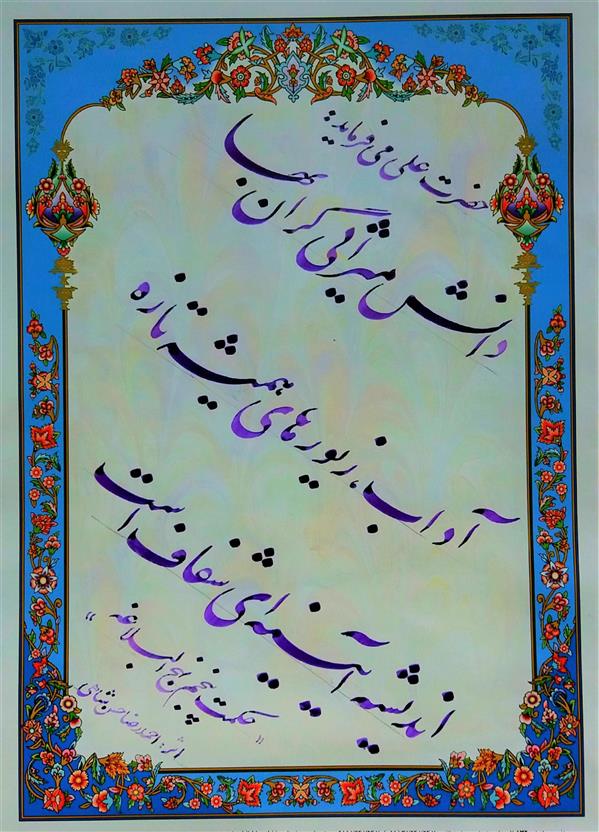 حضرت علی می فرماید:
دانش میراثی گران بها
آداب، زیورهای همیشه تازه
اندیشه آیینه ای شفاف است
"حکمت پنجم نهج البلاغه"
اثر: احمدرضا